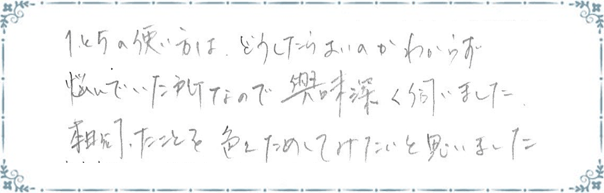 の使い方は、どうしたらよいのかわからず
悩んでいた所なので興味深く伺いました。
たことを色々ためしてみたいと思いました